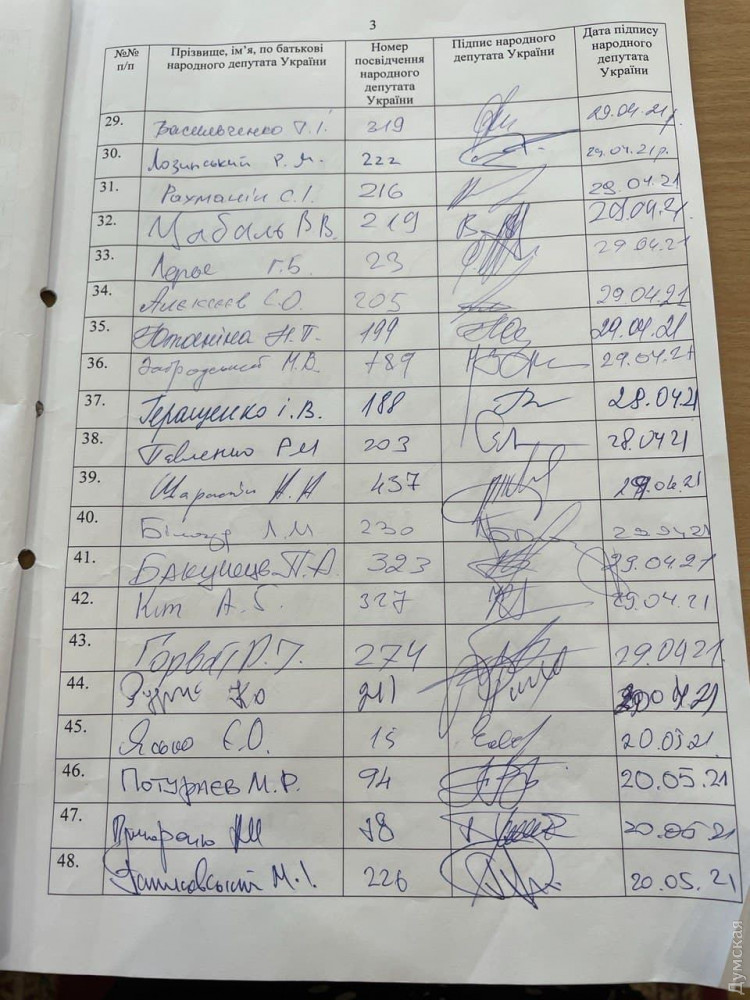 3
№№ п/п Прізвище, ім’я, по батькові народного депутата України Номер посвідчення народного депутата України Підпис народного депутата України Дата підпису народного депутата України
29. Васильченко Г.І. 319 29.04.21р.
30. Лозинський Р.М. 222 29.04.21р.
31. Рахманін С.І. 216 29.04.21
32. Цабаль В.В. 219 29.04.21
33. Г.Б. 23 29.04.21
34. Алєксєєв С.О. 205 29.04.21
35. 199 29.04.21
36. Забродський М.В. 789 29.04.21
37. Геращенко І.В. 188 28.04.21
38. Павленко Р.М 203 28.04.21
39. 437 29.04.21
40. 230 29.04.21
41. Бакунець П.А. 323 29.04.21
42. Кіт А.Б. 327 29.04.21
43. Горват Р.І. 274 29.04.21
44. 29.04.21
45. Ясько Є.О. 15
46. Потураєв М.Р. 94 20.05.21
47. 20.05.21
48. М.І. 226 20.05.21
Думская